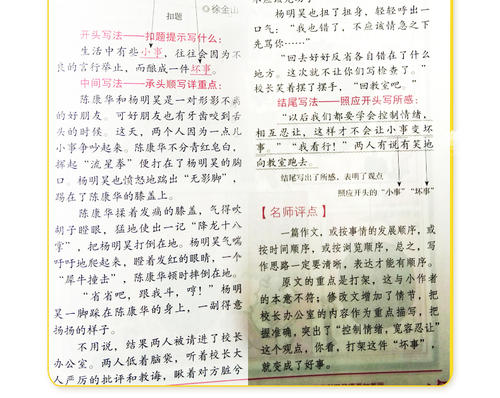 扣题
◎徐金山
开头写法——扣题提示写什么：
生活中有些小事，往往会因为不
良的言行举止，而酿成一件坏事。
中间写法——承头顺写详重点：
陈康华和杨明昊是一对形影不离
的好朋友。可好朋友也有牙齿咬到舌
头的时候。这天，两个人因为一点儿
小事争吵起来。陈康华不分青红皂白，
挥起“流星拳”便打在了杨明昊的胸
口。杨明昊也愤怒地踹出“无影脚”，
踢在了陈康华的膝盖上。
陈康华揉着发痛的膝盖，气得吹
胡子瞪眼，猛地使出一记“降龙十八
掌”，把杨明昊打倒在地。杨明昊气喘
吁吁地爬起来，瞪着发红的眼睛，一个
“犀牛撞击”，陈康华顿时摔倒在地。
“省省吧，跟我斗，哼！”杨明
昊一脚踩在陈康华的身上，一副得意
扬扬的样子。
不用说，结果两人被请进了校长
办公室。两人低着脑袋，听着校长大
人严厉的批评和教诲，瞅着对方脏兮
杨明昊也扭了扭身，轻轻呼出一
口气：“我也错了，不应该情急之下
先骂你……”
“回去好好反省各自错在了什么
地方。这次就不让你们写检查了。”
校长笑着摆了摆手，“回教室吧。”
结尾写法——照应开头写所感：
“以后我们都要学会控制情绪，
相互忍让，这样才不会让小事变坏
事。”“我看行！”两人有说有笑地
向教室跑去。
结尾写出了所感，表明了观点
照应开头的“小事”“坏事”
【名师评点】
一篇作文，或按事情的发展顺序，或
按时间顺序，或按浏览顺序，总之，写
作思路一定要清晰，表达才能有顺序。
原文的重点是打架，这与小作者
的本意不符；修改文增加了情节，把
校长办公室的内容作为重点描写，把
握准确，突出了“控制情绪，宽容忍让”
这个观点，你看，打架这件“坏事”，
就变成了好事。